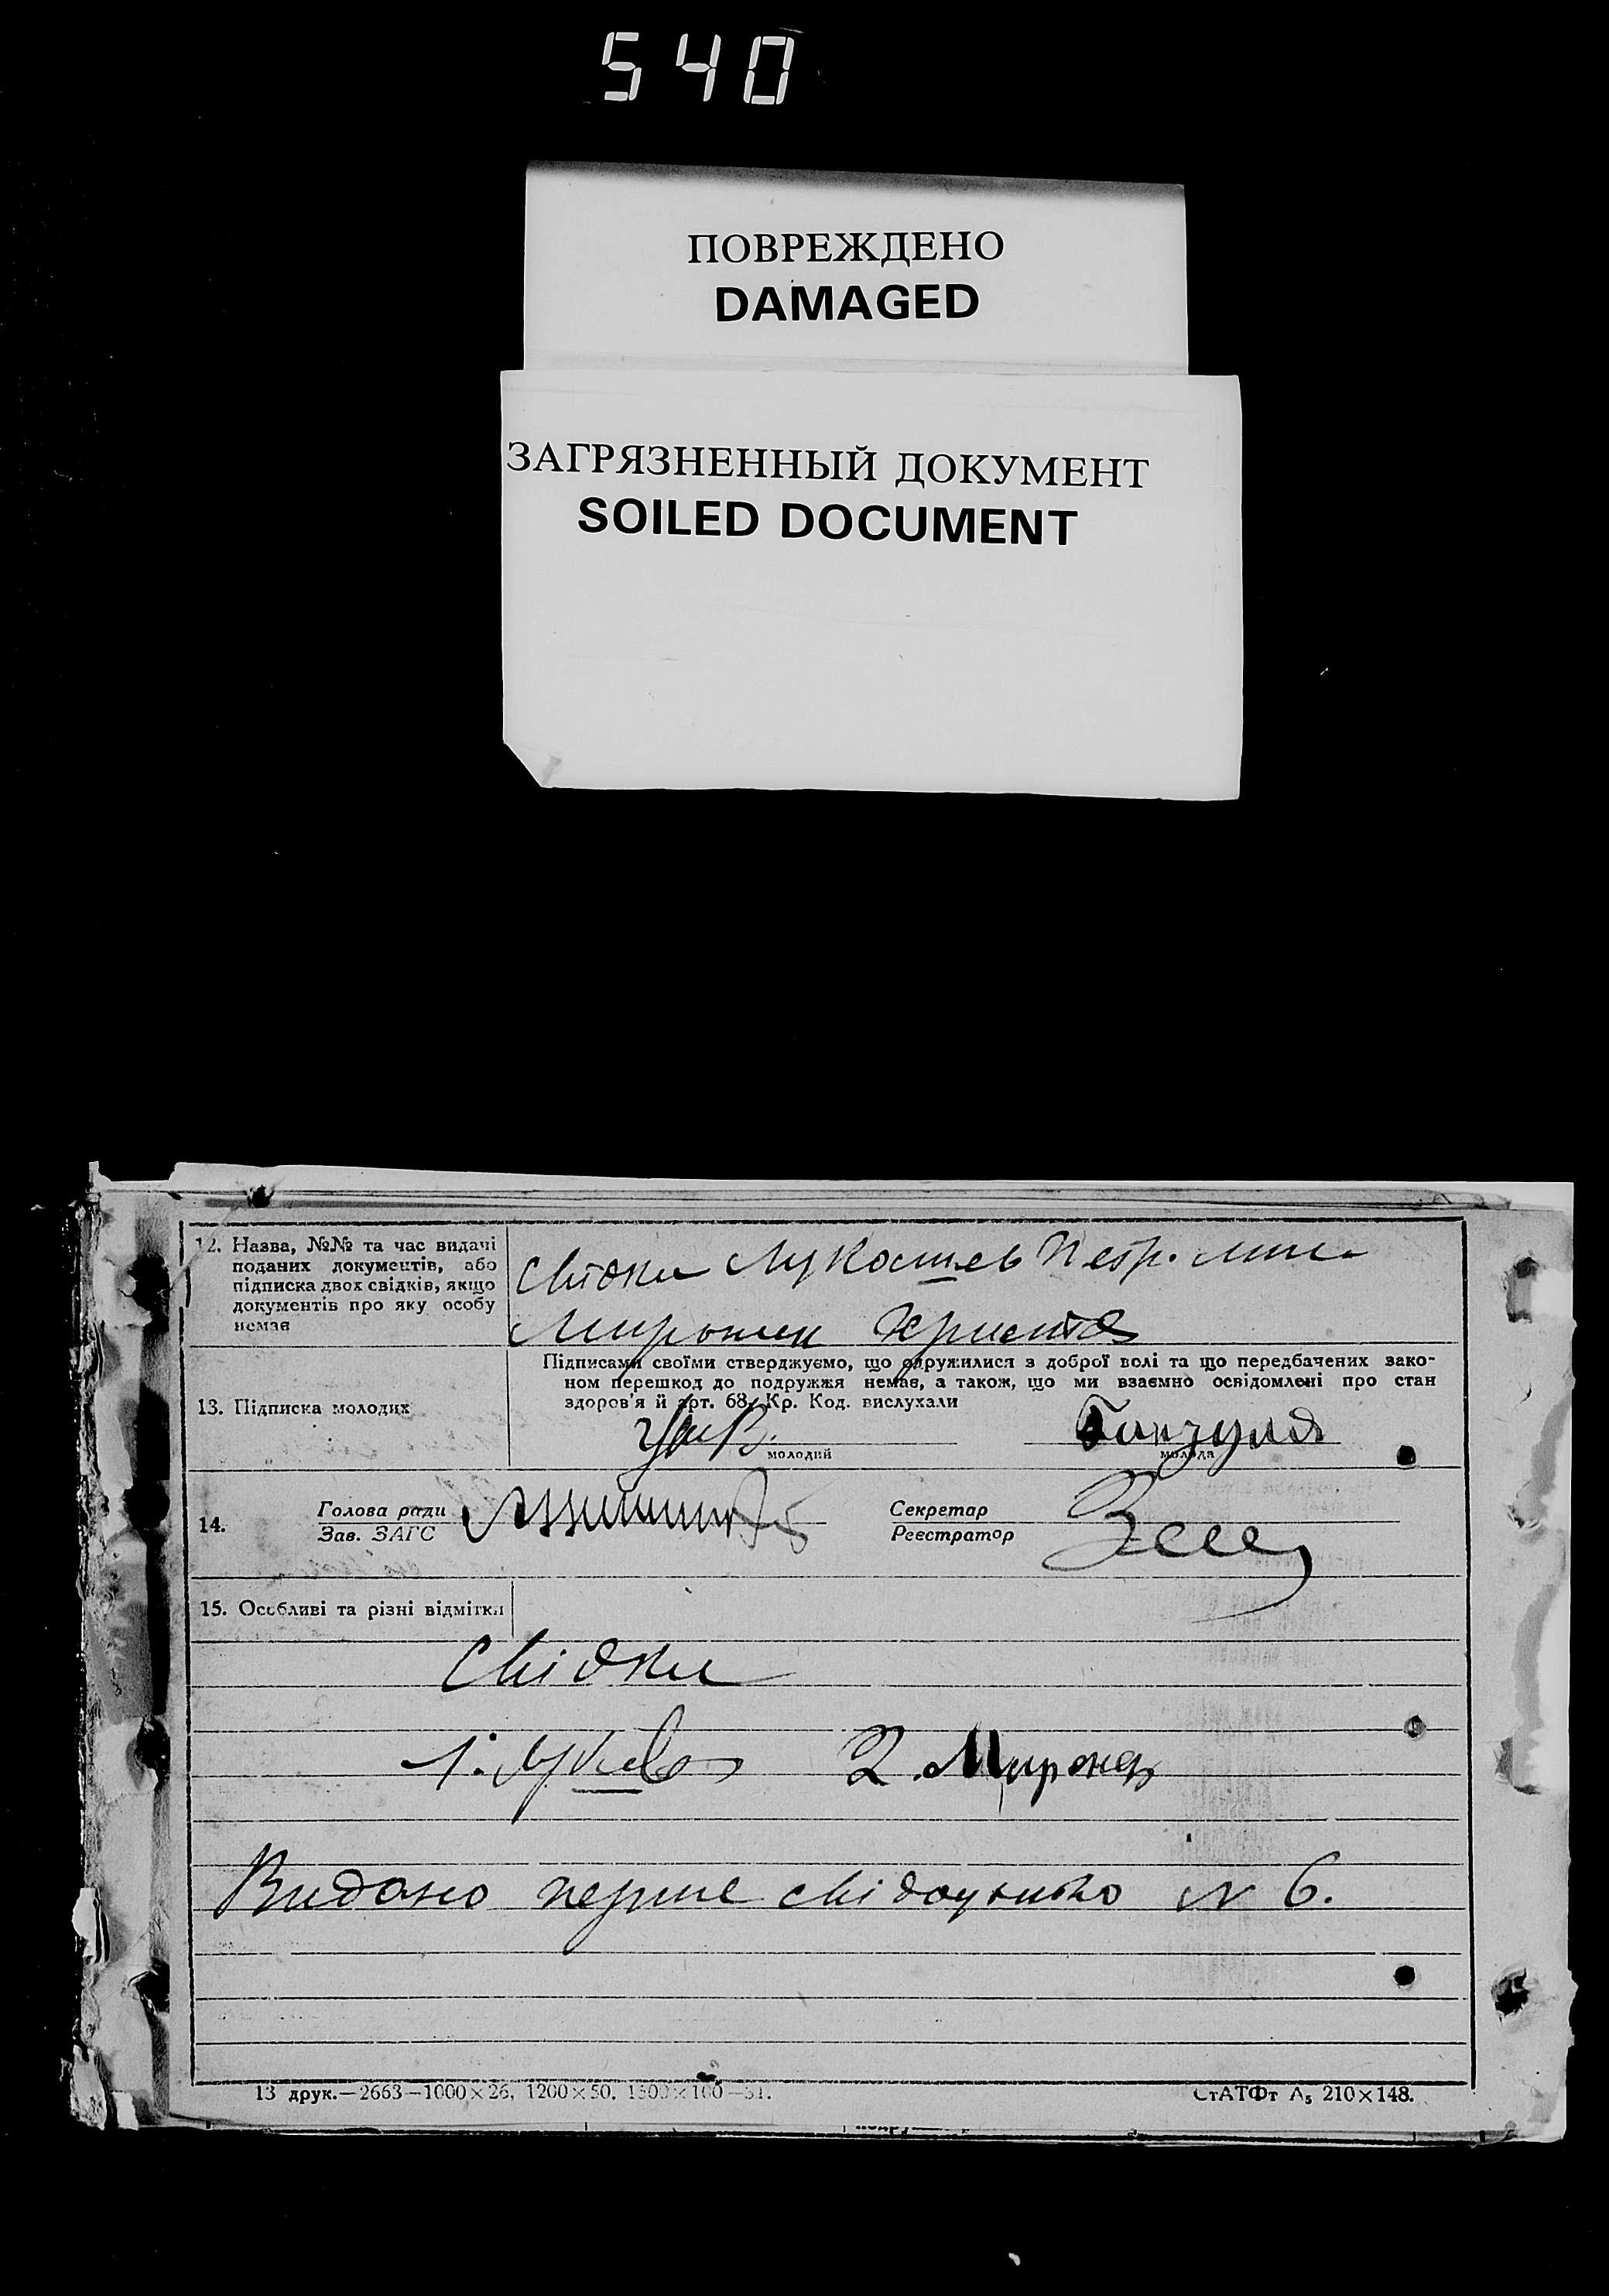 540
ПОВРЕЖДЕНО
DAMAGED
ЗАГРЯЗНЕННЫЙ ДОКУМЕНТ
SOILED DOCUMENT
12. Назва, №№ та час видачі
поданих документів, або
підписка двох свідків, якщо
документів про яку особу
немає
Свідки Лукашев Петр.
Мирошн
Підписами своїми стверджуємо, що одружилися з доброї волі та що передбачених зако-
ном перешкод до подружжя немає, а також, що ми взаємно освідомлені про стан
здоров'я й арт. 68, Кр. Код. вислухали
13. Підписка молодих
молодий
молода
14.
Голова ради
Зав. ЗАГС
Секретар
Реєстратор
15. Особливі та різні відмітки
Свідки
1. 2.
Видано перше свідоцтво N 6.
13 друк.—2663—1000×26, 1200×50, 1500×100—31.
СтАТФт А₅ 210×148.